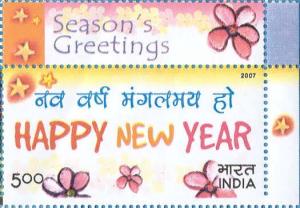 Season's
Greetings
2007
नव वर्ष मंगलमय हो
HAPPY NEW YEAR
500
भारत
INDIA